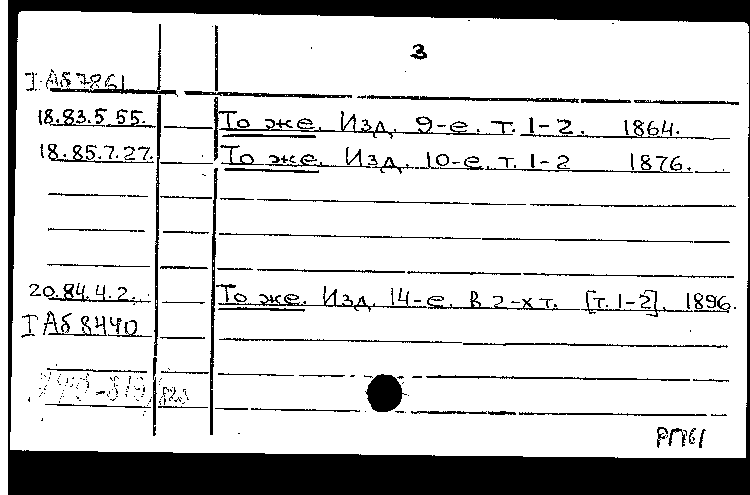 3
I Аб 7861
18.83.5.55. То же. Изд. 9-е. т. 1-2. 1864.
18.85.7.27. То же. Изд. 10-е. т. 1-2 1876.
20.84.4.2. То же. Изд. 14-е. В 2-х т. [т. 1-2]. 1896.
I Аб 8440